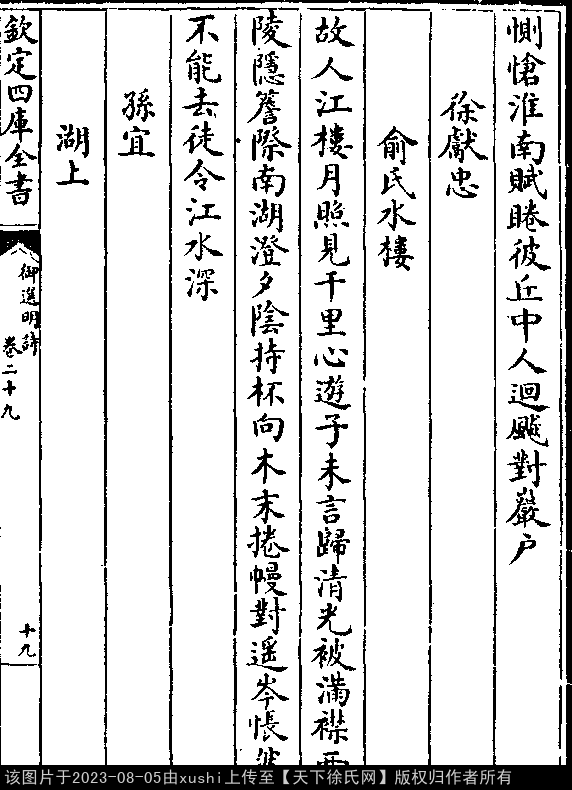 惻愴淮南賦睠彼丘中人迴飈對巖戶
徐獻忠
俞氏水樓
故人江樓月照見千里心遊子未言歸清光被滿襟
陵隱簷際南湖澄夕陰持杯向木末捲幔對遥岑悵
不能去徒令江水深
孫宜
湖上
欽定四庫全書
御選明詩
卷二十九
十九
该图片于2023-08-05由xushi上传至【天下徐氏网】版权归作者所有